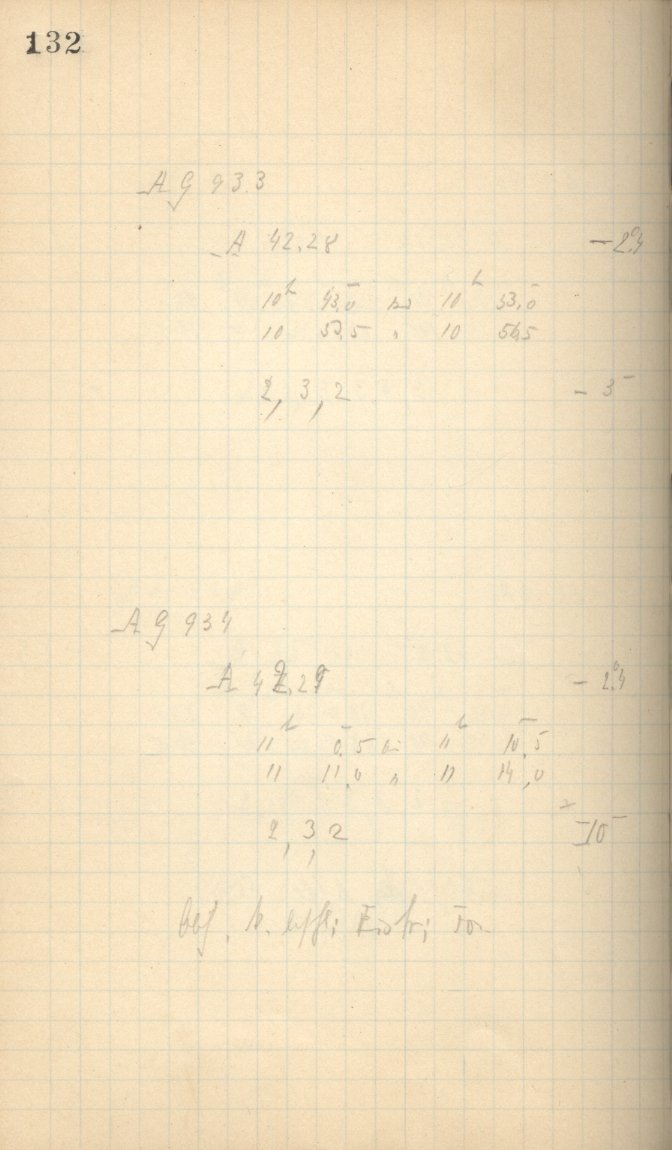 132
AG 933
A 42.28 -2°,4
10h 43,0 bis 10h 53,0
10 53,5 " 10 56,5
2, 3, 2 - 3
AG 934
A 42.29 - 2°,4
11h 0,5 bis 11h 10,5
11 11,0 " 11 14,0
2, 3, 2 -10
Obj.